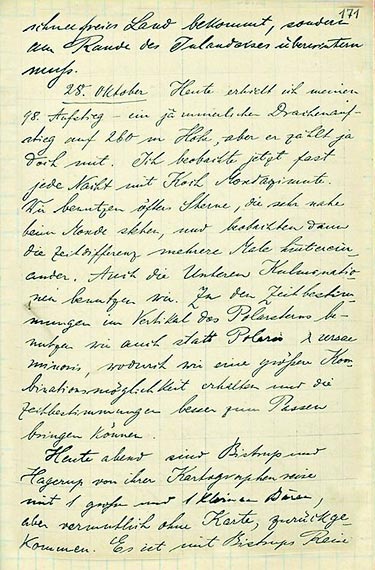 171
schneefreies Land bekommt, sondern
am Rande des Inlandeises überwintern
muss.
28. Oktober Heute erhielt ich meinen
98. Aufstieg – ein jämmerlicher Drachenauf-
stieg auf 260 m Höhe, aber er zählt ja
doch mit. Ich beobachte jetzt fast
jede Nacht mit Koch Mondazimute.
Wir benutzen öfters Sterne, die sehr nahe
beim Monde stehen, und beobachten dann
die Zeitdifferenz mehrere Male hinterein-
ander. Auch die Unteren Kulminatio-
nen benutzen wir. Zu den Zeitbestim
mungen im Vertikal des Polarsterns be-
nutzen wir auch statt Polaris λ ursae
minoris, wodurch wir eine größere Kom
binationsmöglichkeit erhalten und die
Zeitbestimmungen besser zum Passen
bringen können.
Heute abend sind Bistrup und
Hagerup von ihrer Kartographenreise
mit 1 großen und 1 kleinen Bären,
aber vermutlich ohne Karte, zurückge
kommen. Es ist mit Bistrups